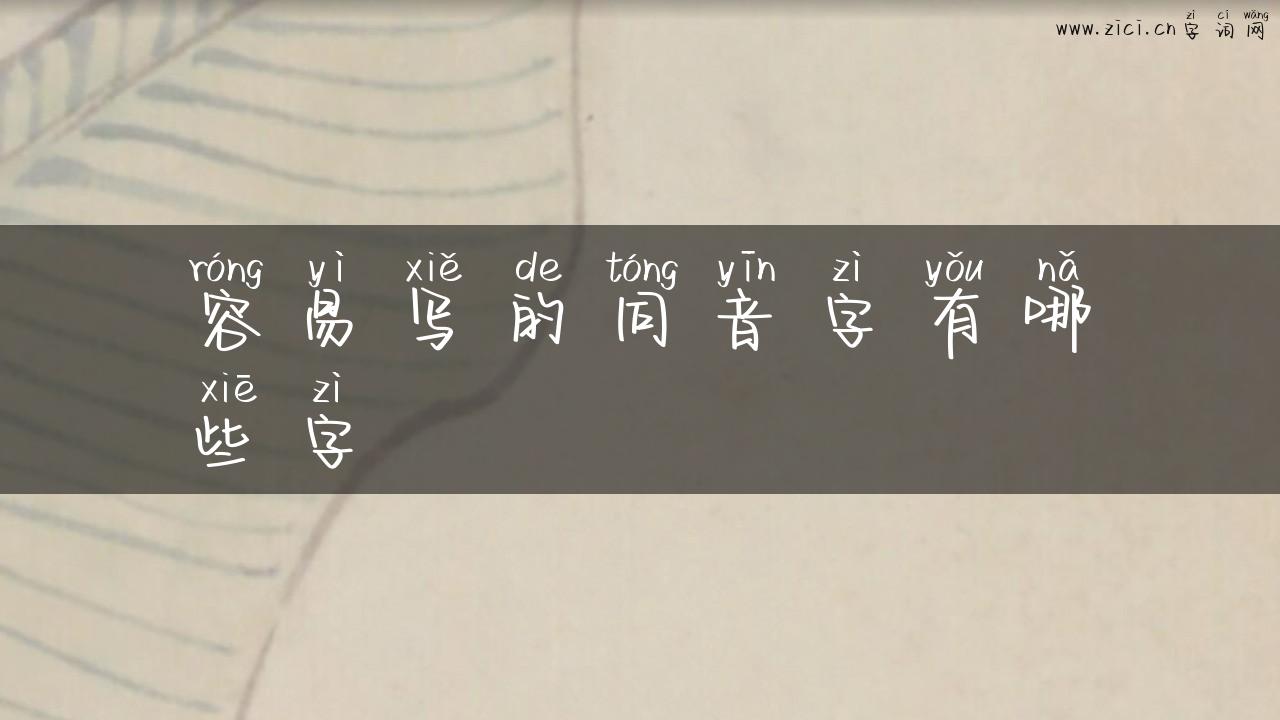 zì cí wǎng
www.zici.cn 字词网
róng yì xiě de tóng yīn zì yǒu nǎ
容易写的同音字有哪
xiē zì
些字